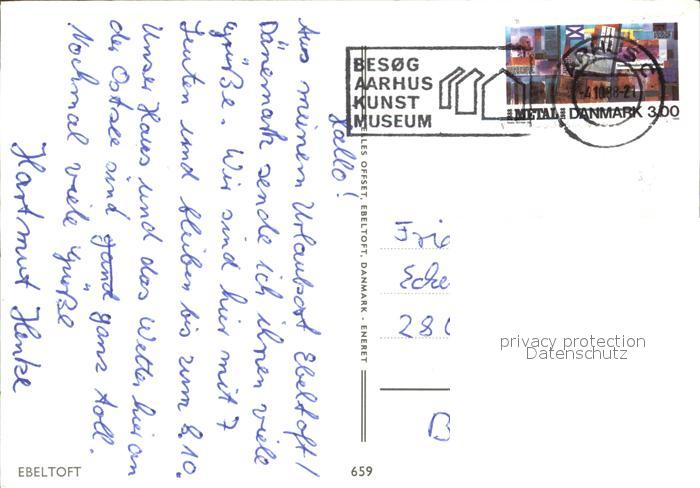 Hallo!
Aus meinem Urlaubsort Ebeltoft /
Dänemark sende ich ihnen viele
Grüße. Wir sind hier mit 7
Leuten und bleiben bis zum 8.10.
Unser Haus und das Wetter hier an
der Ostsee sind ganz toll.
Nochmal viele Grüße
Hartmut Henke
BESØG
AARHUS
KUNST
MUSEUM
METAL DANMARK 3.00
-4.10.88-21
OFFSET, EBELTOFT, DANMARK - ENERET
Frie
Ecke
280
D
privacy protection
Datenschutz
EBELTOFT
659